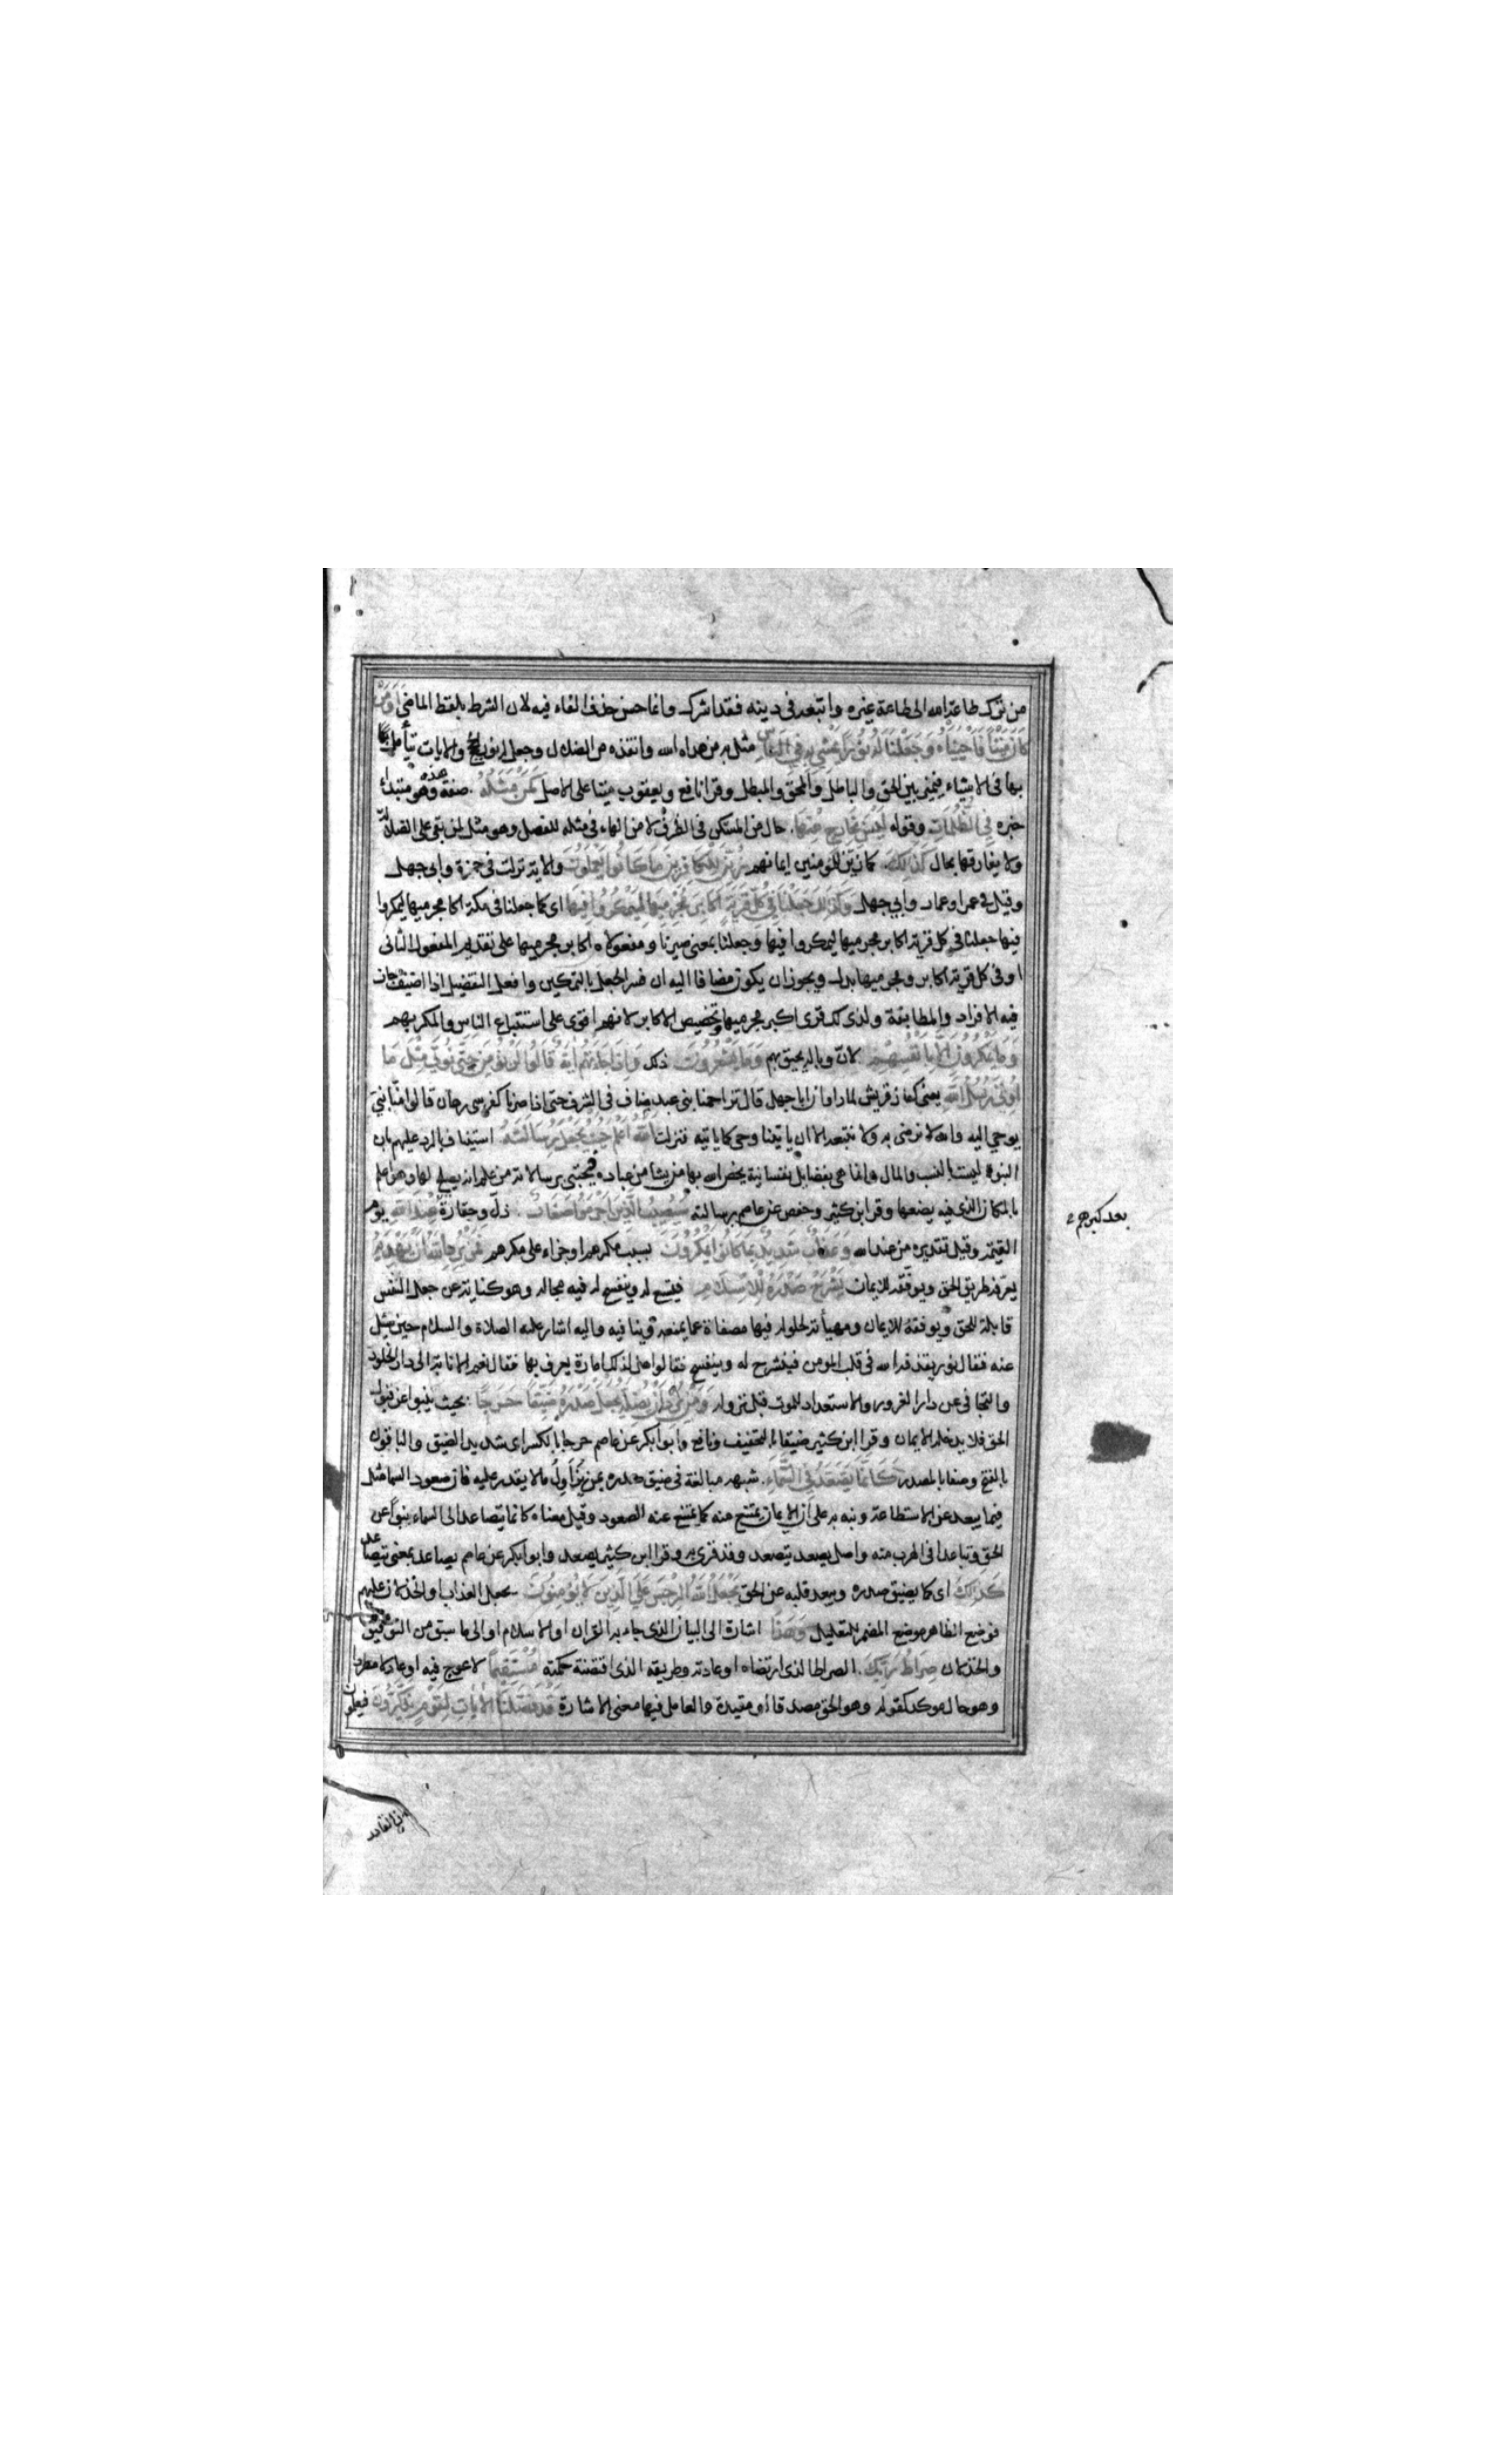 من ترك طاعة الله الى طاعة غيره واتبعه فى دينه فقد اشرك وانما حسن حذف الفاء فيه لان الشرط بلفظ الماضى اَوَمَنْ
كَانَ مَيْتًا فَاَحْيَيْنَاهُ وَجَعَلْنَا لَهُ نُورًا يَمْشِي بِهِ فِي النَّاسِ مثل به من هداه الله وانقذه من الضلال وجعل له نور الحجج والايات يتأمل
بها فى الاشياء فيميز بين الحق والباطل والمحق والمبطل وقرا نافع ويعقوب ميتا على الاصل كَمَنْ مَثَلُهُ صفته وهو مبتداء
خبره فِي الظُّلُمَاتِ وقوله لَيْسَ بِخَارِجٍ مِنْهَا حال من المستكن فى الظرف لا من الهاء فى مثله للفصل وهو مثل لمن بقى على الضلالة
ولا يفارقها بحال كَذَلِكَ كما زين للمومنين ايمانهم زُيِّنَ لِلْكَافِرِينَ مَا كَانُوا يَعْمَلُونَ والاية نزلت فى حمزة وابى جهل
وقيل فى عمر او عمار وأبي جهل وَكَذَلِكَ جَعَلْنَا فِي كُلِّ قَرْيَةٍ اَكَابِرَ مُجْرِمِيهَا لِيَمْكُرُوا فِيهَا اى كما جعلنا فى مكة اكابر مجرميها ليمكروا
فيها جعلنا فى كل قرية اكابر مجرميها ليمكروا فيها وجعلنا بمعنى صيرنا ومفعولاه اكابر مجرميها على تقديم المفعول الثانى
او فى كل قرية اكابر ومجرميها بدل ويجوز ان يكون مضافا اليه ان فسر الجعل بالتمكين وافعل التفضيل اذا اضيف جاز
فيه الافراد والمطابقة ولذلك قرى اكبر مجرميها وتخصيص الاكابر لانهم اقوى على استتباع الناس والمكر بهم
وَمَا يَمْكُرُونَ اِلَّا بِاَنْفُسِهِمْ لان وباله يحيق بهم وَمَا يَشْعُرُونَ ذلك وَاِذَا جَاءَتْهُمْ اٰيَةٌ قَالُوا لَنْ نُؤْمِنَ حَتَّى نُؤْتَى مِثْلَ مَا
اُوتِيَ رُسُلُ اللّٰهِ يعنى كفار قريش لما روى ان ابا جهل قال تزاحمنا بنى عبد مناف فى الشرف حتى اذا صرنا كفرسى رهان قالوا منا نبى
يوحي اليه والله لا نرضى به ولا نتبعه الا ان ياتينا وحى كما ياتيه فنزلت اَللّٰهُ اَعْلَمُ حَيْثُ يَجْعَلُ رِسَالَتَهُ استيناف بالرد عليهم بان
النبوة ليست بالنسب والمال وانما هى بفضايل نفسانية يخص الله بها من يشا من عباده فيجتبى برسالاته من علم انه يصلح لها وهو اعلم
بالمكان الذى فيه يضعها وقرا ابن كثير وحفص عن عاصم رسالته سَيُصِيبُ الَّذِينَ اَجْرَمُوا صَغَارٌ ذل وحقارة عِنْدَ اللّٰهِ يوم
القيمة وقيل تقديره من عند الله وَعَذَابٌ شَدِيدٌ بِمَا كَانُوا يَمْكُرُونَ بسبب مكرهم او جزاء على مكرهم فَمَنْ يُرِدِ اللّٰهُ اَنْ يَهْدِيَهُ
يعرفه طريق الحق ويوفقه للايمان يَشْرَحْ صَدْرَهُ لِلْاِسْلَامِ فيتسع له وينفسح له فيه مجاله وهو كناية عن جعل النفس
قابلة للحق ويوفقه للايمان ومهيأة لحلوله فيها مصفاة عما يمنعه وينافيه واليه اشار عليه الصلاة والسلام حين سئل
عنه فقال نور يقذفه الله فى قلب المومن فينشرح له وينفسح فقالوا هل لذلك امارة يعرف بها فقال نعم الانابة الى دار الخلود
والتجافى عن دار الغرور والاستعداد للموت قبل نزوله وَمَنْ يُرِدْ اَنْ يُضِلَّهُ يَجْعَلْ صَدْرَهُ ضَيِّقًا حَرَجًا بحيث ينبو عن قبول
الحق فلا يدخله الايمان وقرا ابن كثير ضيقا بالتخفيف ونافع وابو بكر عن عاصم حرجا بالكسر اى شديد الضيق والباقون
بالفتح وصفا بالمصدر كَاَنَّمَا يَصَّعَّدُ فِي السَّمَاءِ شبهه مبالغة فى ضيق صدره بمن يزاول ما لا يقدر عليه فان صعود السما مثل
فيما يبعد عن الاستطاعة ونبه به على ان الايمان يمتنع منه كما يمتنع عنه الصعود وقيل معناه كانما يتصاعد الى السماء نبوا عن
الحق وتباعدا فى الهرب منه واصل يصعد يتصعد وقد قرى به وقرا ابن كثير يصعد وابو بكر عن عاصم يصاعد بمعنى يتصاعد
كَذَلِكَ اى كما يضيق صدره ويبعد قلبه عن الحق يَجْعَلُ اللّٰهُ الرِّجْسَ عَلَى الَّذِينَ لَا يُؤْمِنُونَ يجعل العذاب والخذلان عليهم
فوضع الظاهر موضع المضمر للتعليل وَهَذَا اشارة الى البيان الذى جاء به القران او الاسلام او الى ما سبق من التوفيق
والخذلان صِرَاطُ رَبِّكَ الصراط الذى ارتضاه او عادته وطريقه الذى اقتضته حكمته مُسْتَقِيمًا لا عوج فيه او عادلا مطردا
وهو حال موكد كقوله وهو الحق مصدقا أو مقيدة والعامل فيها معنى الاشارة قَدْ فَصَّلْنَا الْاٰيَاتِ لِقَوْمٍ يَذَّكَّرُونَ فيعلمون